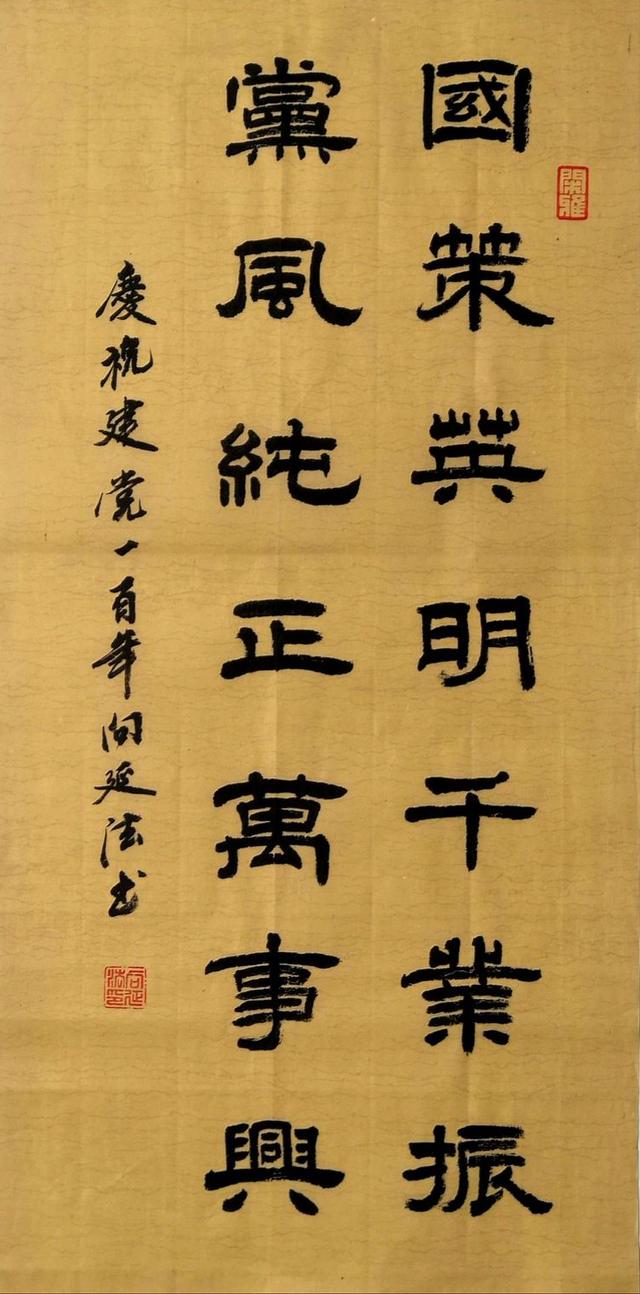 國策英明千業振
黨風純正萬事興
慶祝建党一百年向延法书
閑雅
向延法印